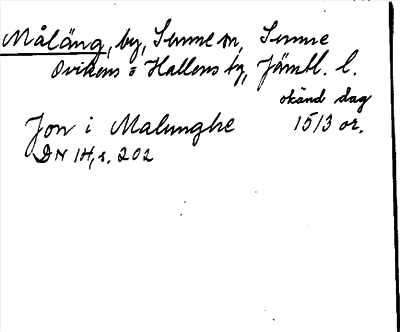 Måläng, by, Sunne sn, Sunne
Ovikens o Hallens tg, Jämtl. l.
okänd dag
Jon i Malunghe 1513 or.
DN 14, s. 202